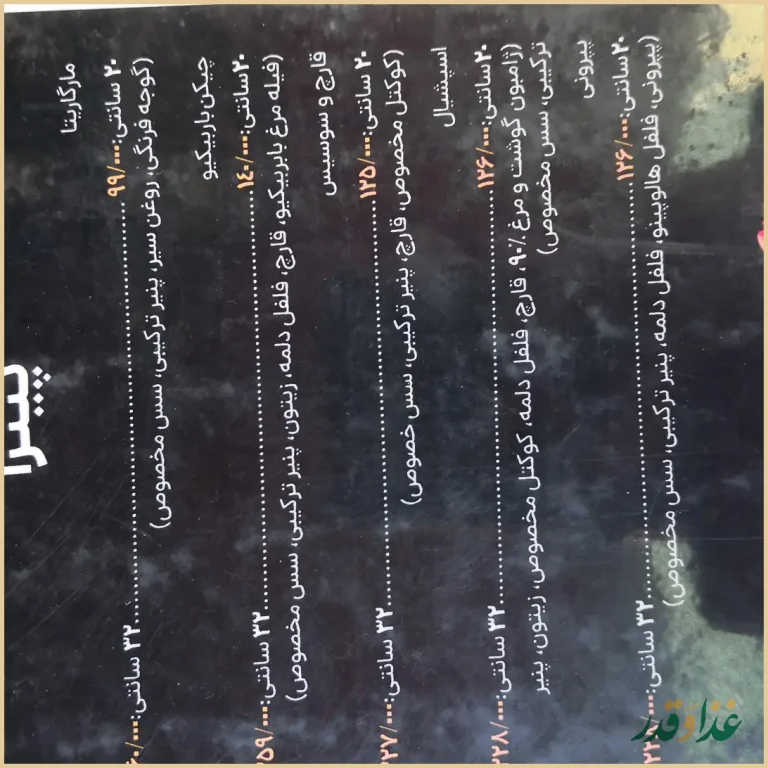 پیتزا
مارگاریتا
۲۰ سانتی: ۹۹/۰۰۰ ........ ۳۲ سانتی:
(گوجه فرنگی، روغن سیر، پنیر ترکیبی، سس مخصوص)
چیکن باربیکیو
۲۰ سانتی: ۱۴۰/۰۰۰ ........ ۳۲ سانتی:
(فیله مرغ باربیکیو، قارچ، فلفل دلمه، زیتون، پنیر ترکیبی، سس مخصوص)
قارچ و سوسیس
۲۰ سانتی: ۱۲۵/۰۰۰ ........ ۳۲ سانتی:
(کوکتل مخصوص، قارچ، پنیر ترکیبی، سس خصوص)
اسپشیال
۲۰ سانتی: ۱۲۶/۰۰۰ ........ ۳۲ سانتی:
(ژامبون گوشت و مرغ ۹۰٪، قارچ، فلفل دلمه، کوکتل مخصوص، زیتون، پنیر
ترکیبی، سس مخصوص)
پپرونی
۲۰ سانتی: ۱۲۶/۰۰۰ ........ ۳۲ سانتی:
(پپرونی، فلفل هالوپینو، فلفل دلمه، پنیر ترکیبی، سس مخصوص)
غذا و قدر